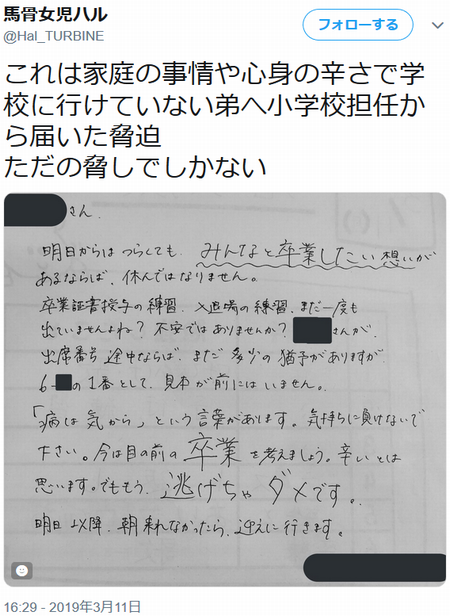 馬骨女児ハル
@Hal_TURBINE
フォローする
これは家庭の事情や心身の辛さで学
校に行けていない弟へ小学校担任か
ら届いた脅迫
ただの脅しでしかない
さん.
明日からはつらくても、みんなと卒業したい想いが
あるならば、休んではなりません。
卒業証書授与の練習、入退場の練習、まだ一度も
出ていませんよね?不安ではありませんか? さんが、
出席番号途中ならば、まだ多少の猶予がありますが
6- の1番として、見本が前にはいません。
「病は気から」という言葉があります。気持ちに負けないで
下さい。今は目の前の卒業を考えましょう。辛いとは
思います。でももう、逃げちゃダメです。
明日以降、朝来れなかったら、迎えに行きます。
16:29 - 2019年3月11日